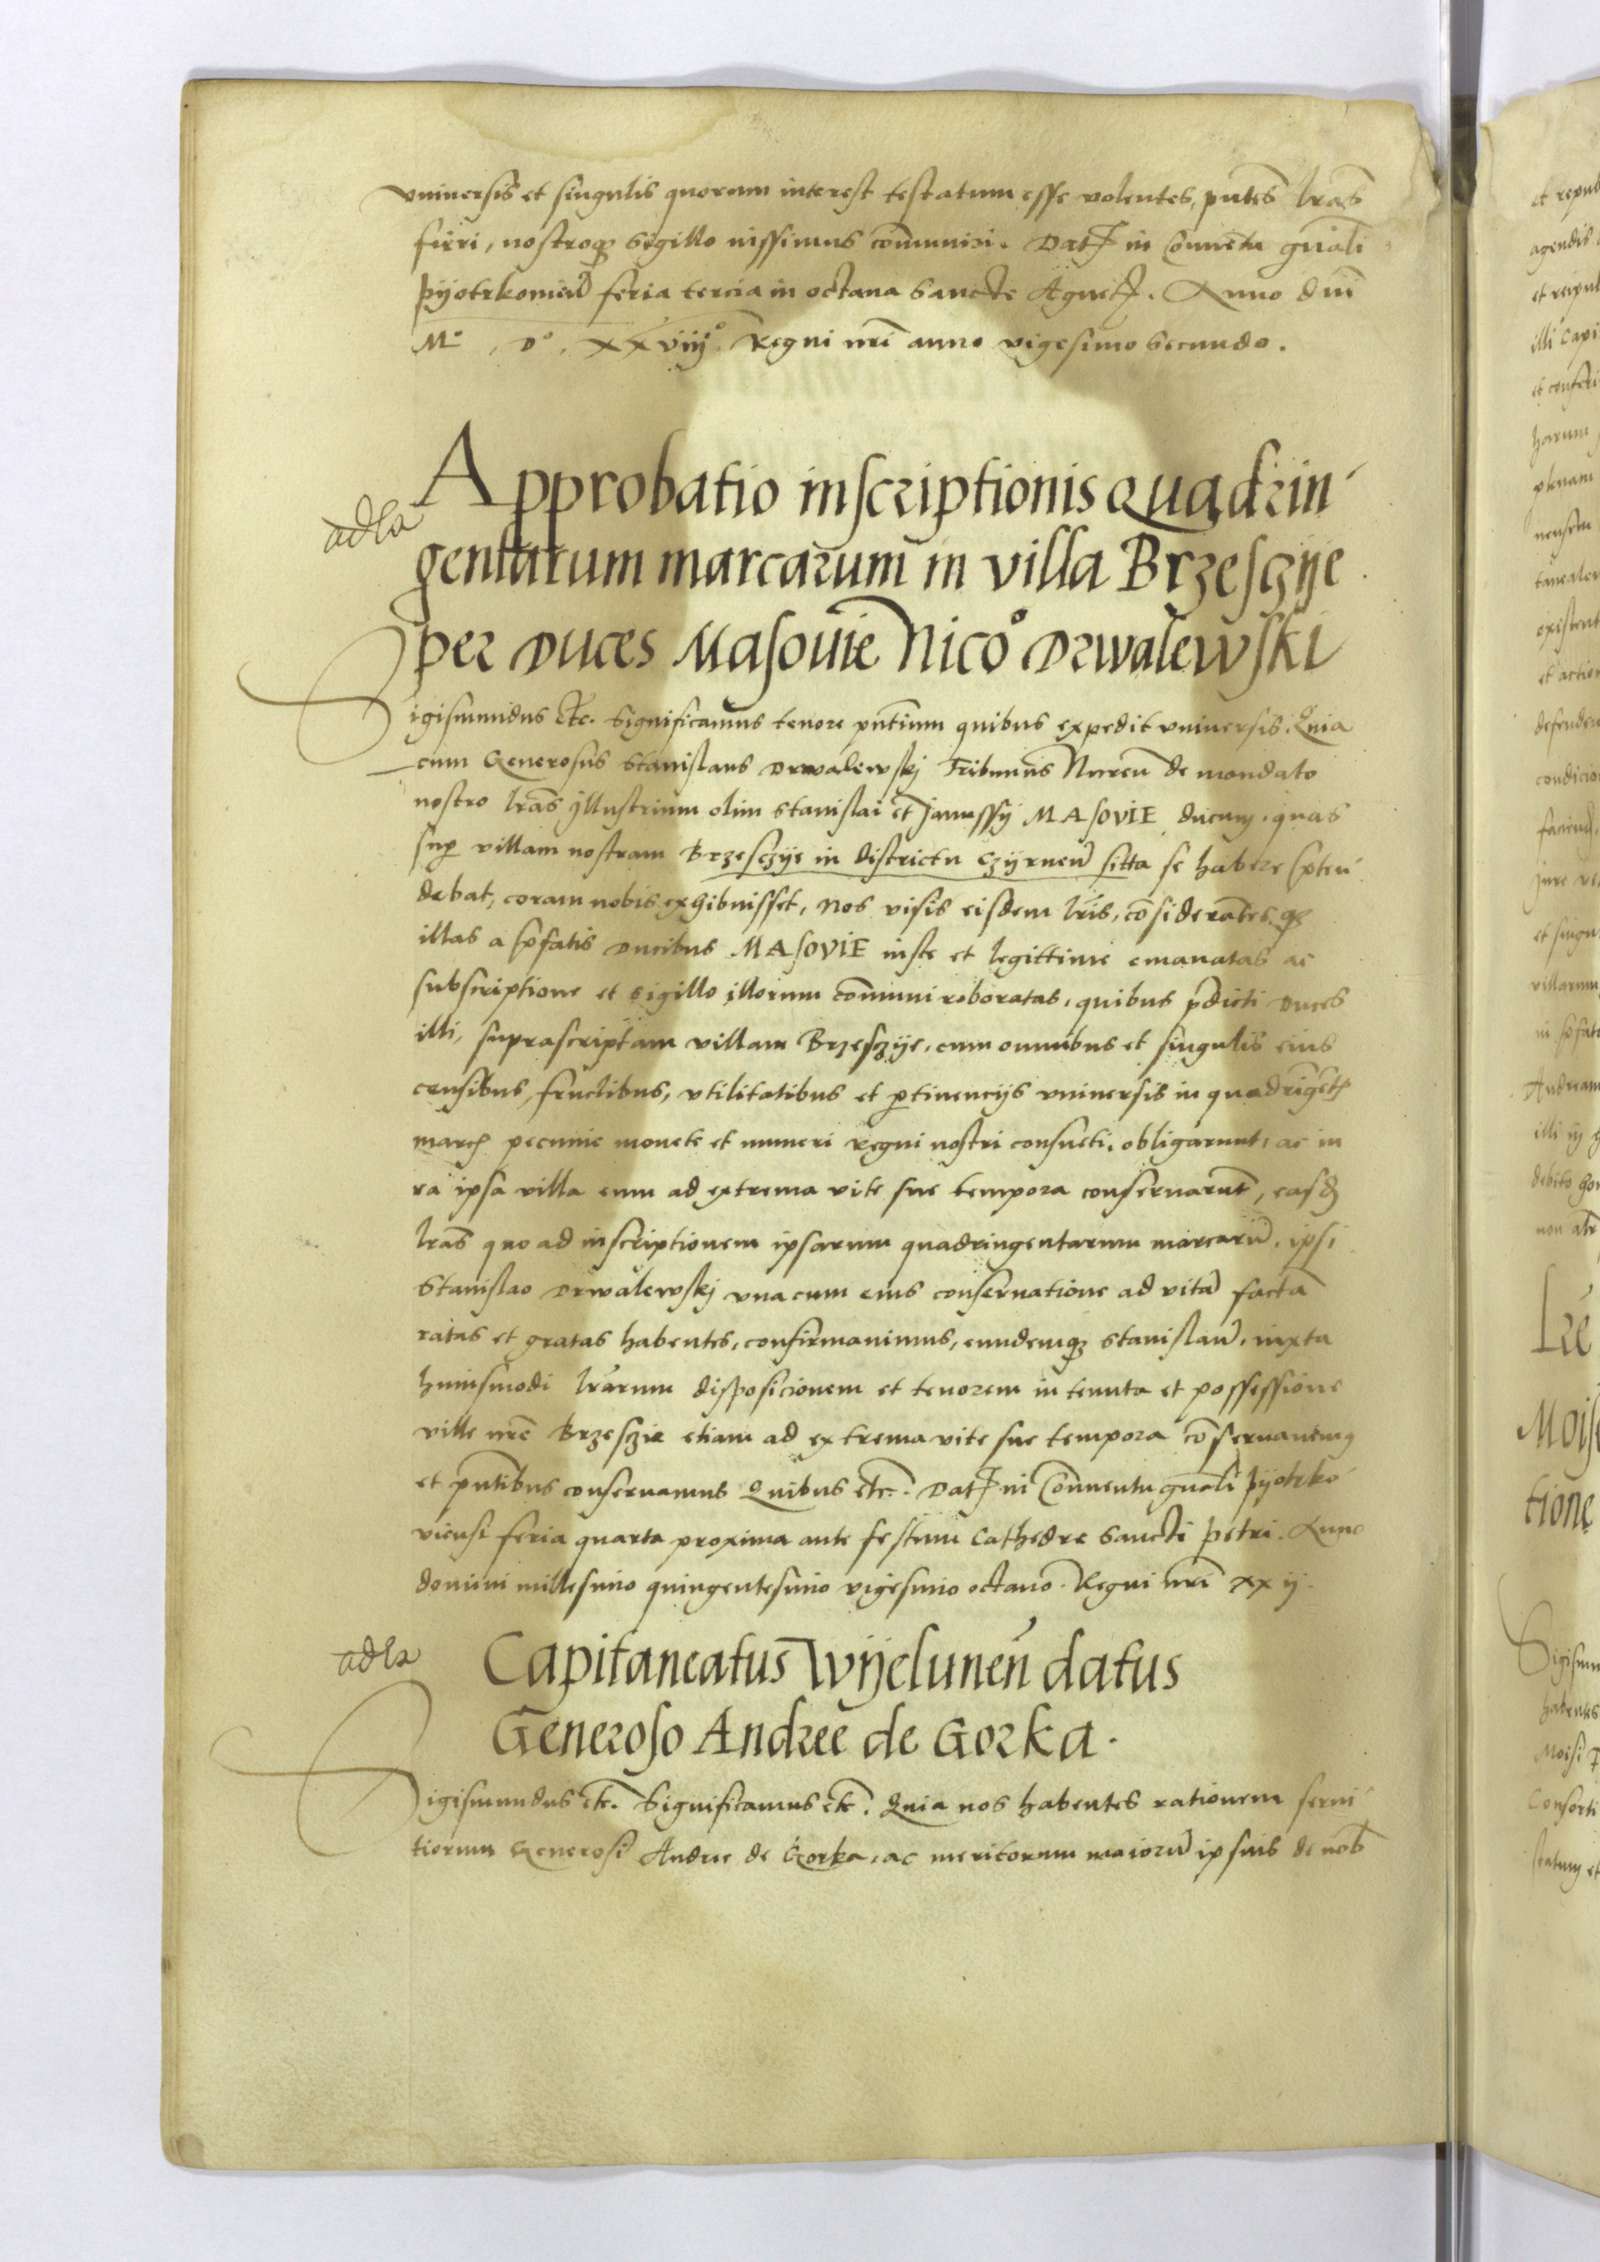 vniuersis et singulis quorum interest testatum esse volentes, pntēs lrās
fieri, nostroqȝ sigillo iussimus cōmuniri. Datȝ in Conuētu gnāli
Pyotrkomieñ feria tercia in octaua Sancte Agnetȝ. Anno dnī
Mº. Dº. XXviijº. Regni nrī anno vigesimo secundo.
Approbatio inscriptionis Quadrin
adla
gentarum marcarum in villa Brzesczye
per Duces Masouie Nicoº Drwalewski
Sigismundus etc. Significamus tenore pntium quibus expedit vniuersis. Quia
cum Generosus Stanislaus Drwalewskj Tribunus Nureñ de mandato
nostro lrās Illustrium olim Stanislai et Janussij MASOVIE ducum, quas
sup villam nostram Brzesczye in districtu Czyrneñ sitta se habere pten
debat, coram nobis exhibuisset, Nos visis eisdem lrīs, cōsiderātes qȝ
illas a pfatis Ducibus MASOVIE iuste et legittime emanatas ac
subscriptione et sigillo illorum cōmuni roboratas, quibus pdicti Duces
illi, suprascriptam villam Brzesczye, cum omnibus et singulis eius
censibus, fructibus, vtilitatibus et ptinencijs vniuersis in quadringētȝ
marcȝ pecunie monete et numeri Regni nostri consueti, obligarunt, ac in
ea ipsa villa eum ad extrema vite sue tempora conseruarunt, easdȝ
lrās quo ad inscriptionem ipsarum quadringentarum marcarū, ipsi
Stanislao Drwalewskj vnacum eius conseruatione ad vitā factā
ratas et gratas habentes, confirmauimus, eundemqȝ Stanislaū, iuxta
huiusmodi lrārum disposicionem et tenorem in tenuta et possessione
ville nrē Brzesczie etiam ad extrema vite sue tempora cōseruauimꝰ
et pntibus conseruamus Quibus etc. Datȝ in Conuentu gnāli Pyotrko
uiensi feria quarta proxima ante festum Cathedre Sancti Petri. Anno
domini millesimo quingentesimo vigesimo octauo. Regni nrī xxij.
adla
Capitaneatus Wyelunēn datus
Generoso Andree de Gorka.
Sigismundus etc. Significamus etc. Quia nos habentes rationem serui
tiorum Generosi Andree de Gorka, ac meritorum maiorū ipsius de nob